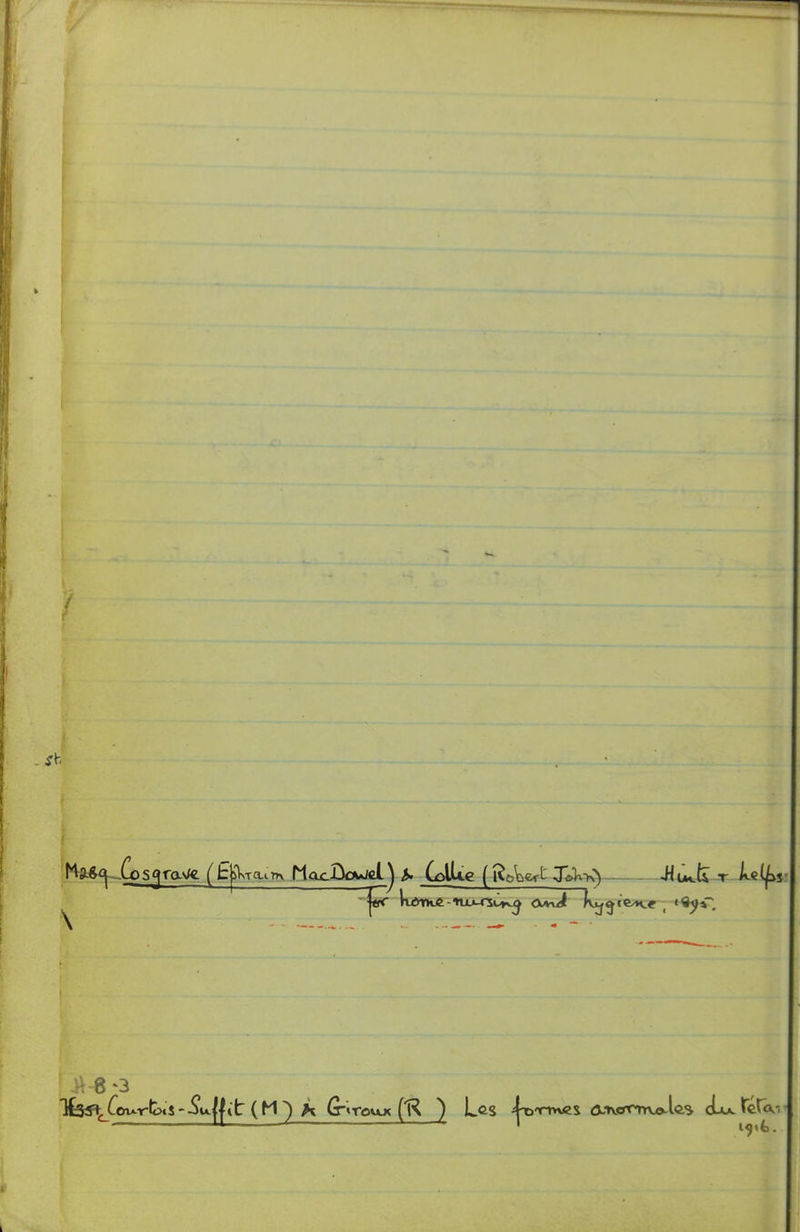 st
Cosgrave (Ephraim MacDowel) & Collie (Robert John) Hints & helps
for home-nursing and hygiene,
A-8-3
Courtois-Suffit (M) & Giroux (R ) Les formes anormales du Téta
1916.